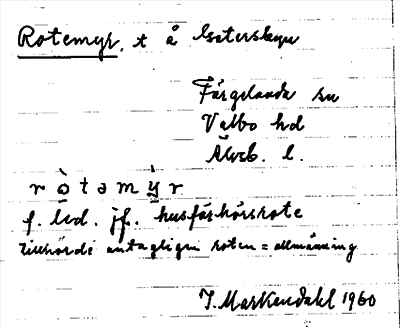 Rotemyr, t å
Färgelanda sn
Valbo hd
Älvsb. l.
ròtemỳr
f. led. jf. husförhörsrote
tillhörde antagligen roten = allmänning
J. Markendahl 1960